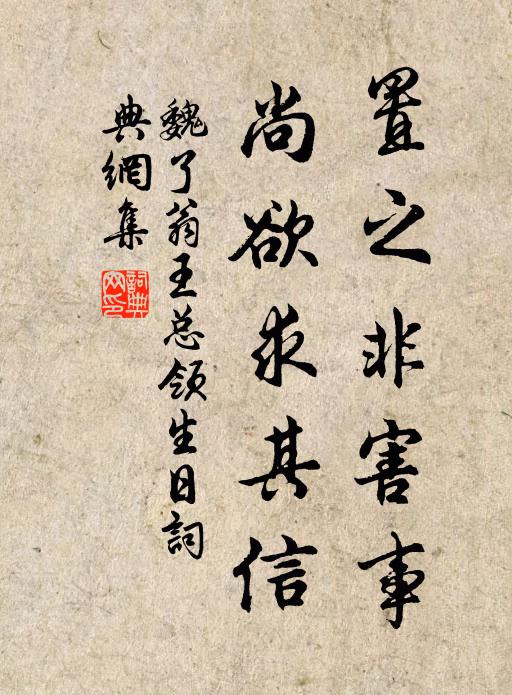 置之非害事
尚欲求其信
魏了翁王总领生日詞
典網集
詞典网印